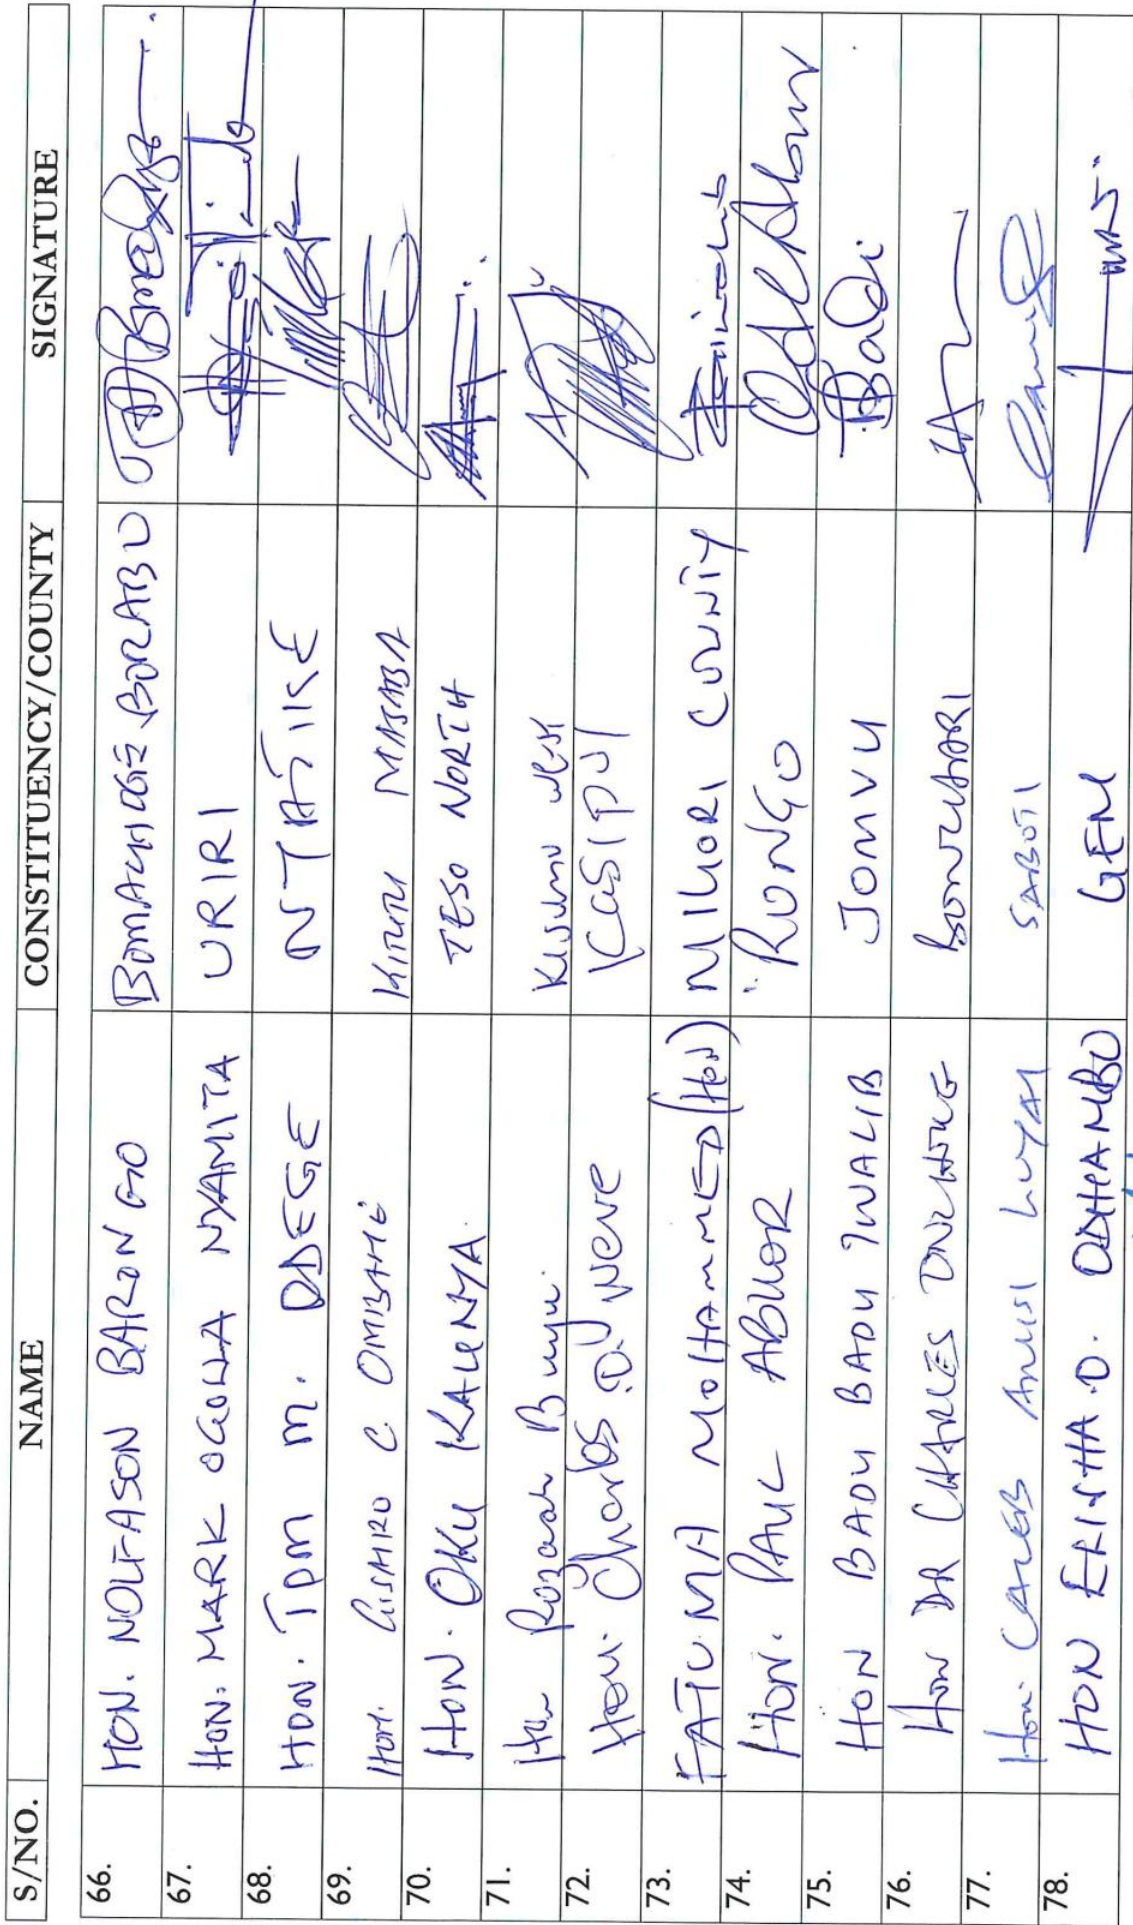 S/NO. NAME CONSTITUENCY/COUNTY SIGNATURE
66. HON. NOLFASON BARONGO BOMACHOGE BORABU
67. HON. MARK OGOLLA NYAMITA URIRI
68. HON. TOM M. ODEGE NYATIKE
69. HON. C. OMBAHE KITUTU MASABA
70. HON. OKU KAUNYA TESO NORTH
71. Hon Rozaah Buyu Kisumu West
72. Hon. Charles KASIPUL
73. FATUMA MOHAMMED (Hon) MIGORI COUNTY
74. Hon. PAUL ABUOR RONGO
75. HON BADY BADY TWALIB JOMVU
76. Hon DR CHARLES ONCHOKE BONCHARI
77. Hon. CALEB AMISI LUYAI SABOTI
78. HON ELISHA O. ODHIAMBO GEM